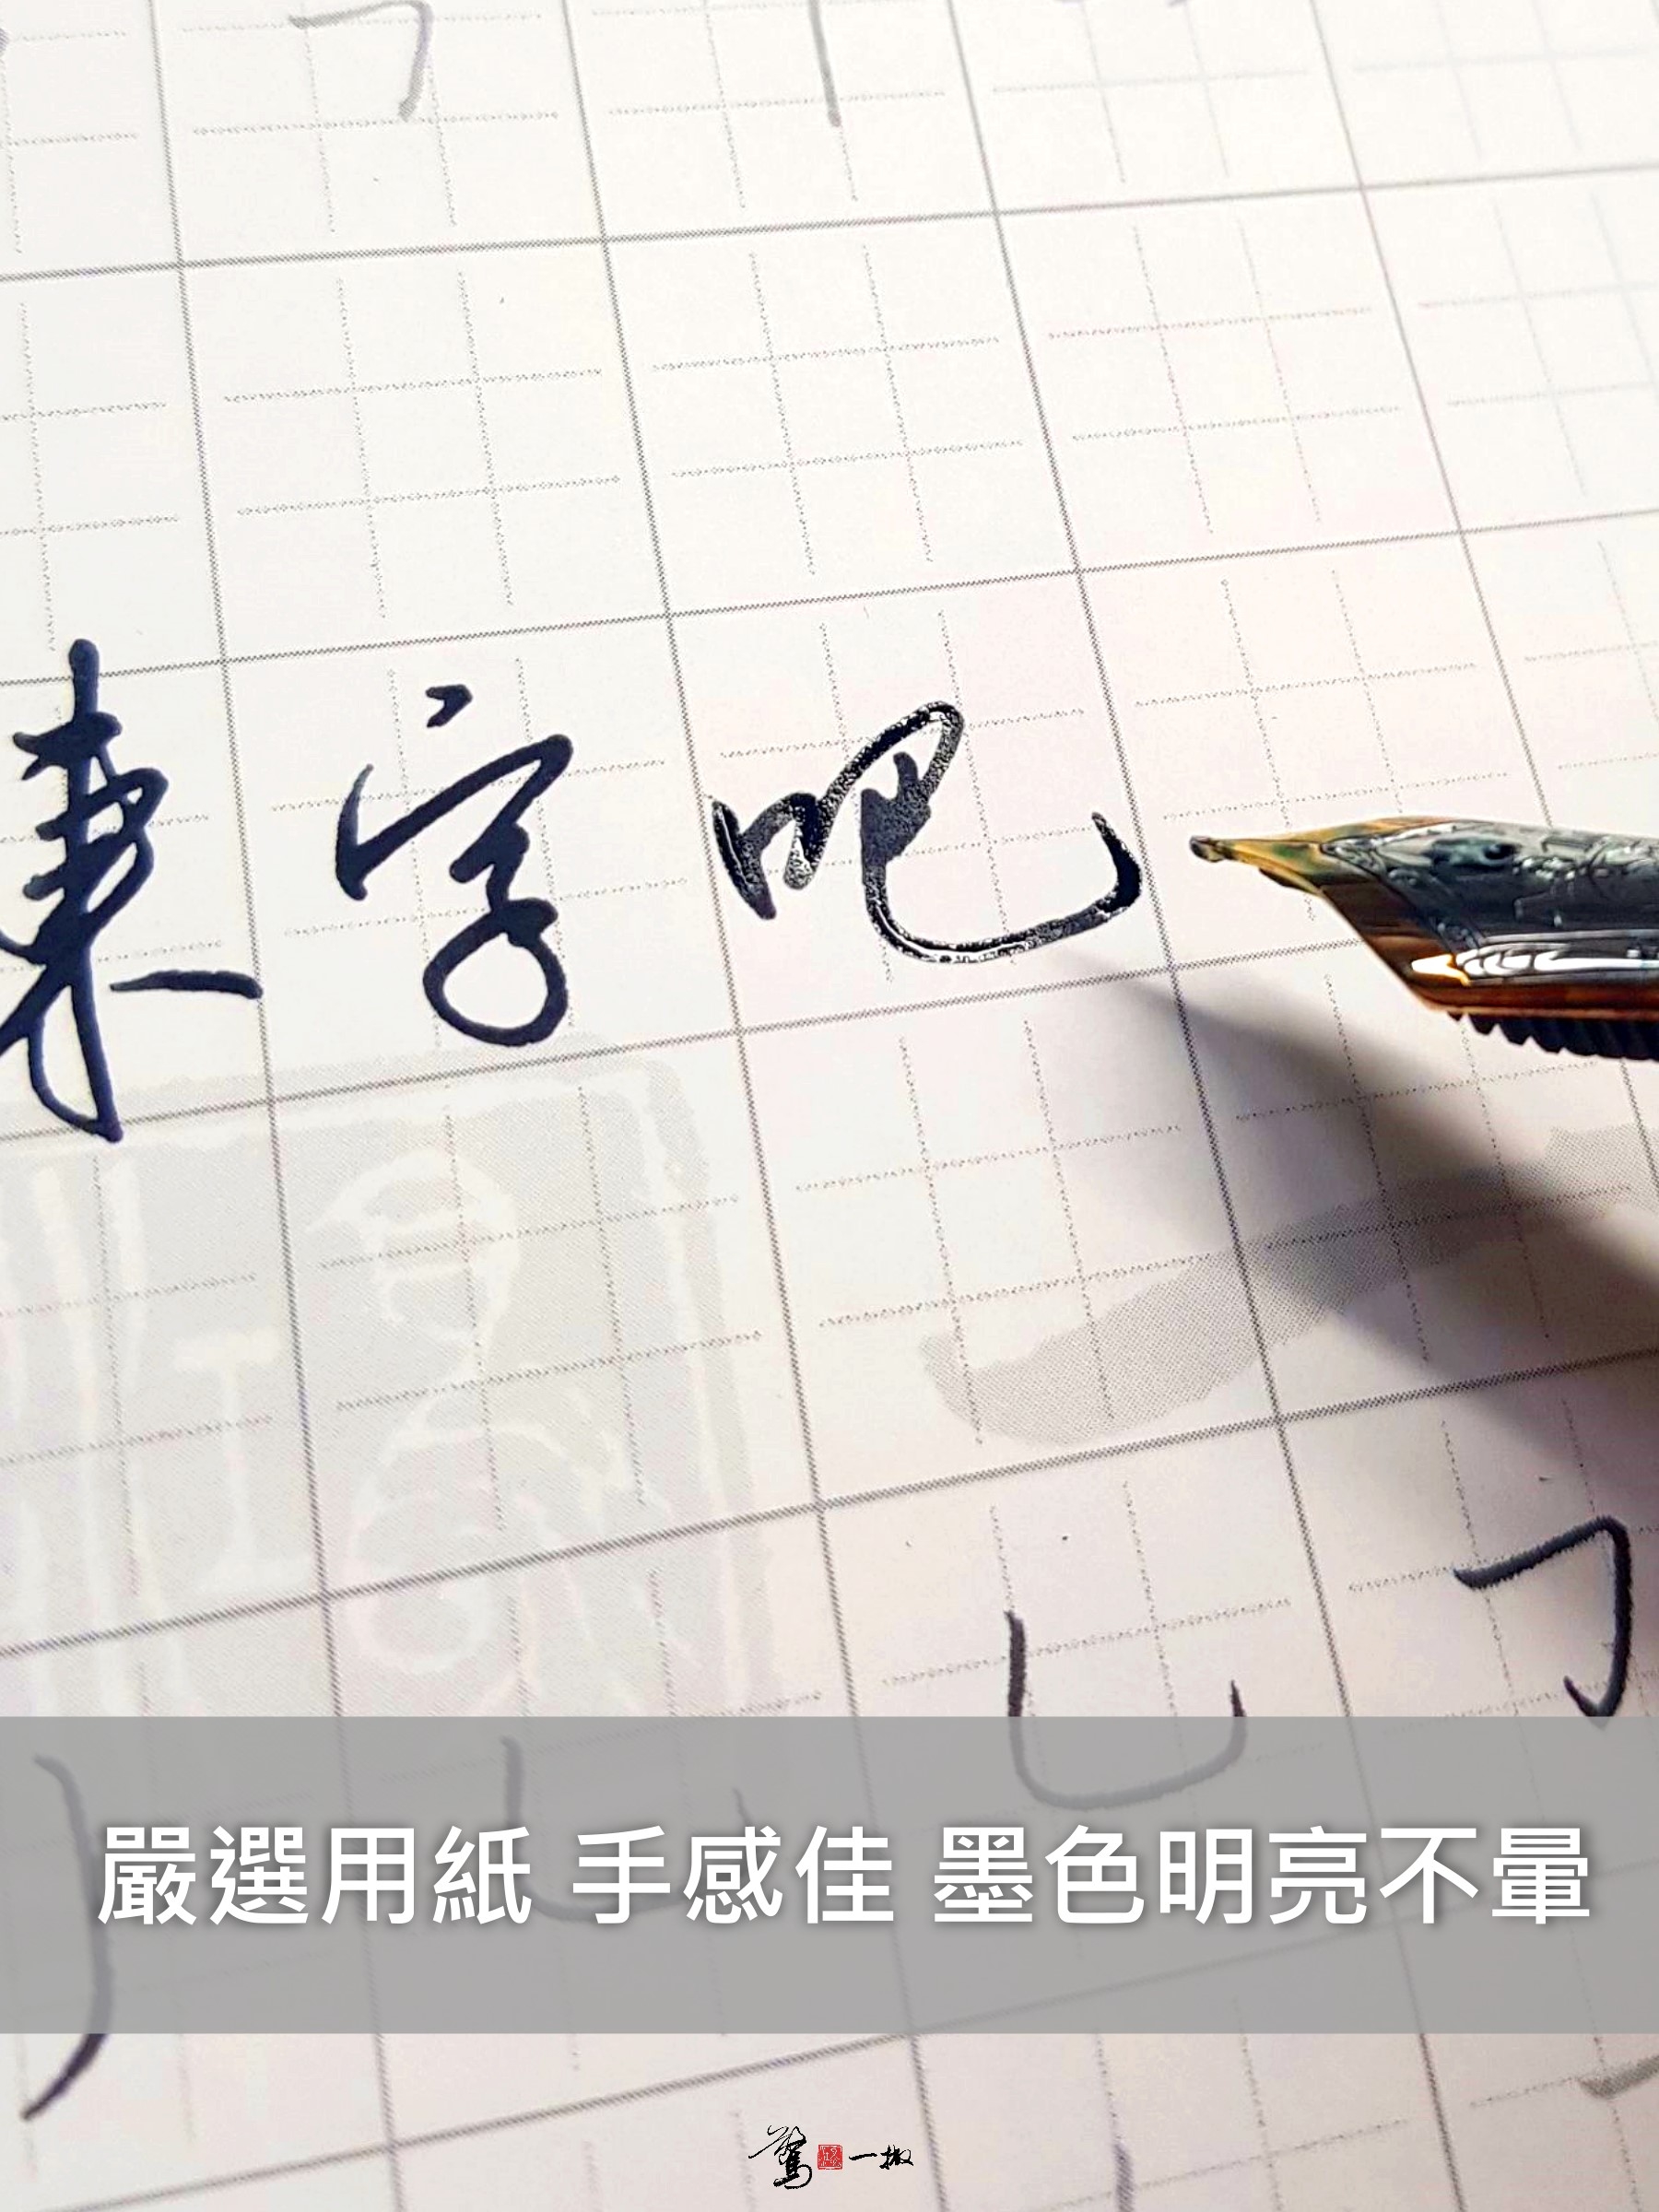 字吧
嚴選用紙 手感佳 墨色明亮不暈
驚一撇